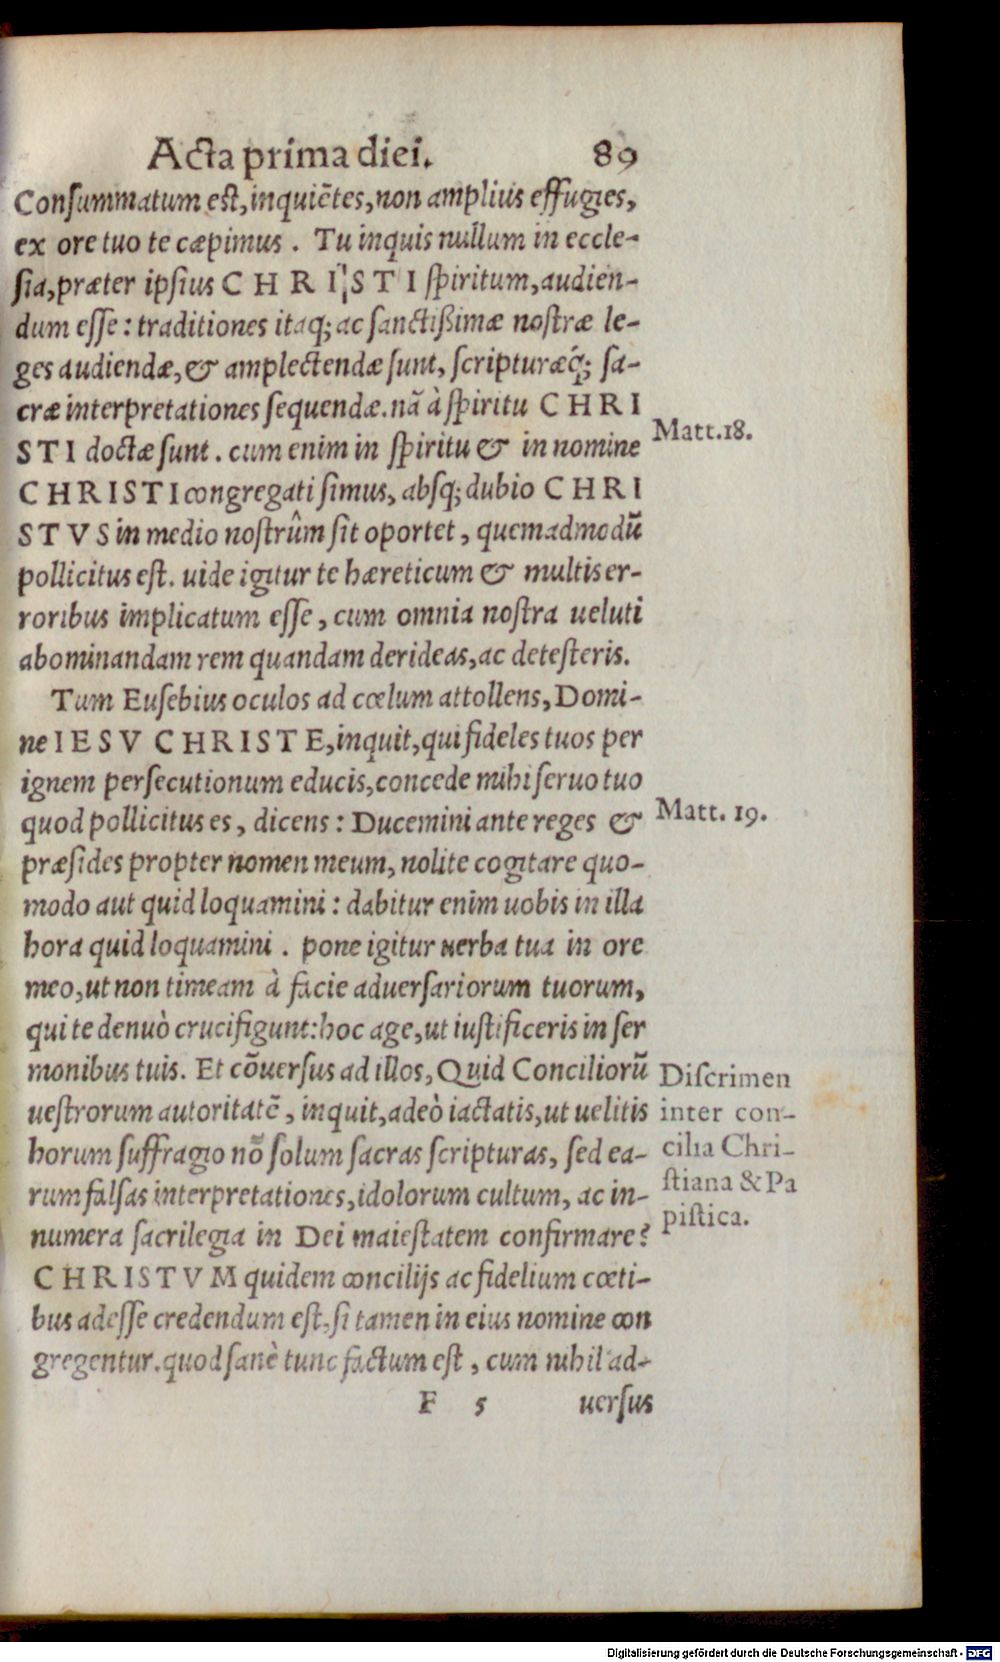 Acta prima diei. 89
Conſummatum eſt, inquiẽtes, non amplius effugies,
ex ore tuo te cæpimus . Tu inquis nullum in eccle-
ſia, præter ipſius CHRISTI ſpiritum, audien-
dum eſſe: traditiones itaq; ac ſanctißimæ noſtræ le-
ges audiendæ, & amplectendæ ſunt, ſcripturæq́; ſa-
cræ interpretationes ſequendæ. nã à ſpiritu CHRI
STI doctæ ſunt . cum enim in ſpiritu & in nomine
Matt.18.
CHRISTI congregati ſimus, abſq; dubio CHRI
STVS in medio noſtrûm ſit oportet, quemadmodũ
pollicitus eſt. uide igitur te hæreticum & multis er-
roribus implicatum eſſe, cum omnia noſtra ueluti
abominandam rem quandam derideas, ac deteſteris.
Tum Euſebius oculos ad cœlum attollens, Domi-
ne IESV CHRISTE, inquit, qui fideles tuos per
ignem perſecutionum educis, concede mihi ſeruo tuo
quod pollicitus es, dicens: Ducemini ante reges &
Matt. 19.
præſides propter nomen meum, nolite cogitare quo-
modo aut quid loquamini: dabitur enim uobis in illa
hora quid loquamini . pone igitur uerba tua in ore
meo, ut non timeam à facie aduerſariorum tuorum,
qui te denuò crucifigunt: hoc age, ut iuſtificeris in ſer
monibus tuis. Et cõuerſus ad illos, Quid Conciliorũ
ueſtrorum autoritatẽ, inquit, adeò iactatis, ut uelitis
horum ſuffragio nõ ſolum ſacras ſcripturas, ſed ea-
rum falſas interpretationes, idolorum cultum, ac in-
numera ſacrilegia in Dei maieſtatem confirmare?
Diſcrimen
inter con-
cilia Chri-
ſtiana & Pa
piſtica.
CHRISTVM quidem concilijs ac fidelium cœti-
bus adeſſe credendum eſt, ſi tamen in eius nomine con
gregentur. quod ſanè tunc factum eſt, cum nihil ad-
F 5 uerſus
Digitalisierung gefördert durch die Deutsche Forschungsgemeinschaft - DFG